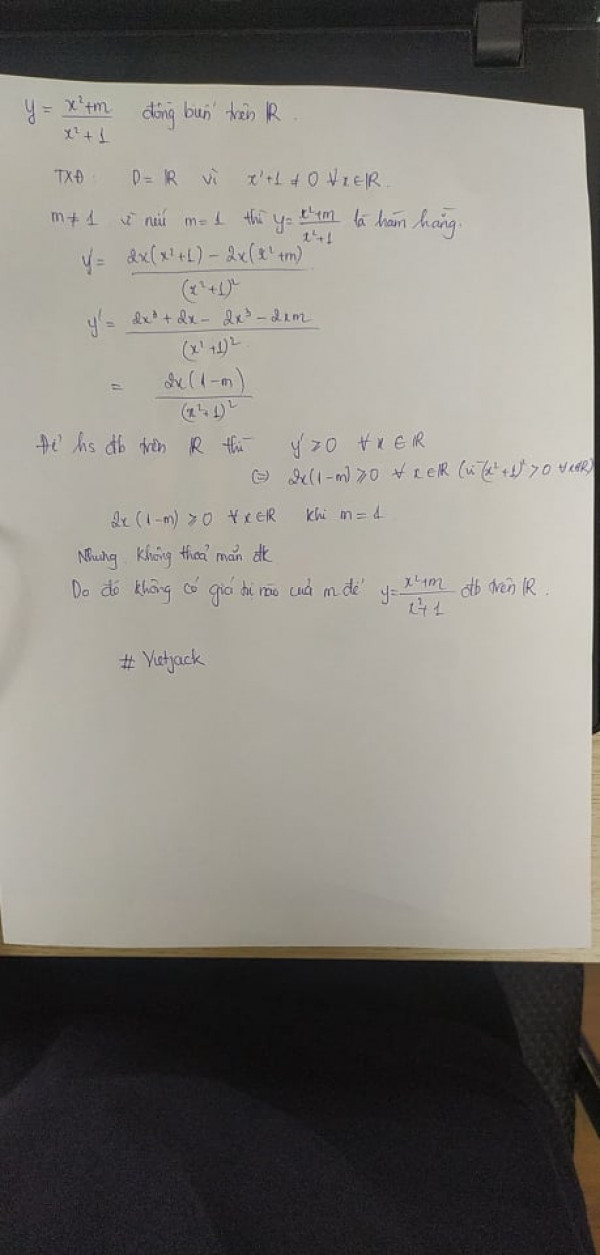 y = \frac{x²+m}{x²+1} đồng biến trên ℝ.
TXĐ: D = ℝ vì x²+1 ≠ 0 ∀x∈ℝ.
m ≠ 1 vì nếu m = 1 thì y = \frac{x²+m}{x²+1} là hàm hằng.
y' = \frac{2x(x²+1) - 2x(x²+m)}{(x²+1)²}
y' = \frac{2x³ + 2x - 2x³ - 2xm}{(x²+1)²}
= \frac{2x(1-m)}{(x²+1)²}
Để hs đb trên ℝ thì y' ⩾ 0 ∀x∈ℝ
⇔ 2x(1-m) ⩾ 0 ∀x∈ℝ (vì (x²+1)² > 0 ∀x∈ℝ)
2x(1-m) ⩾ 0 ∀x∈ℝ khi m = 1
Nhưng không thoả mãn đk
Do đó không có giá trị nào của m để y = \frac{x²+m}{x²+1} đb trên ℝ.
# Vietjack